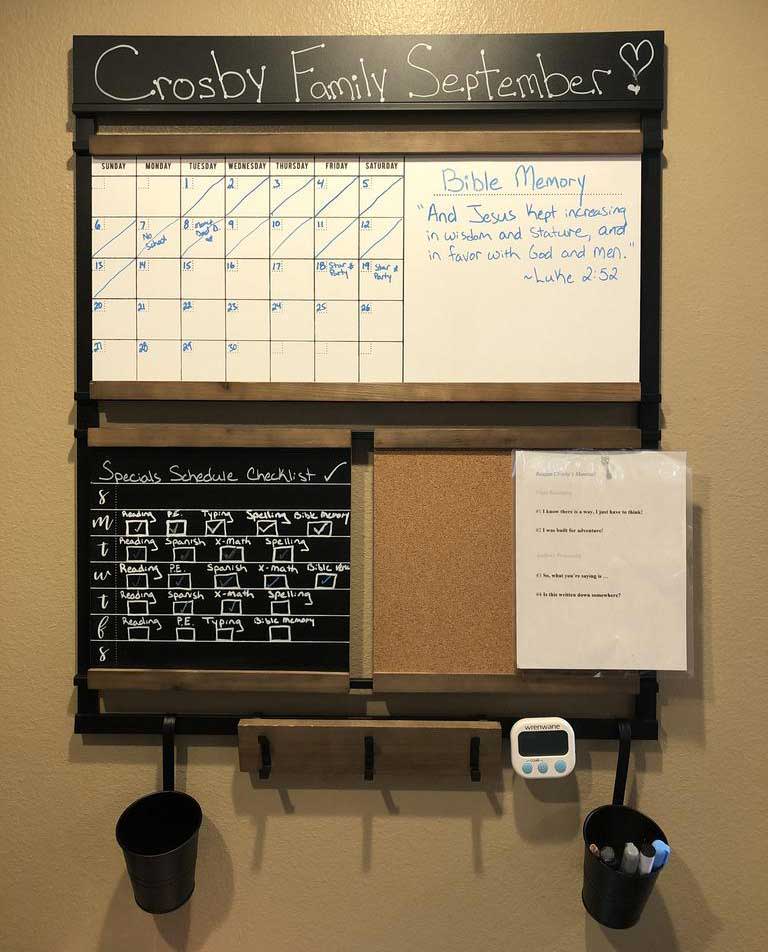 Crosby Family September!
SUNDAY MONDAY TUESDAY WEDNESDAY THURSDAY FRIDAY SATURDAY
1 2 3 4 5
6 7 No School 8 9 10 11 12
13 14 15 16 17 18 Star Party 19 Star Party
20 21 22 23 24 25 26
27 28 29 30
Bible Memory
"And Jesus kept increasing
in wisdom and stature, and
in favor with God and men."
~Luke 2:52
Specials Schedule Checklist ✓
s
m Reading P.E. Typing Spelling Bible Memory
t Reading Spanish X-math Spelling
w Reading P.E. Spanish X-math Bible
t Reading Spanish X-math Spelling
f Reading P.E. Typing Bible Memory
s
#1 I know there is a way, I just have to think!
#2 I was built for adventure!
#3 So, what you're saying is ...
#4 Is this written down somewhere?
wrenwane